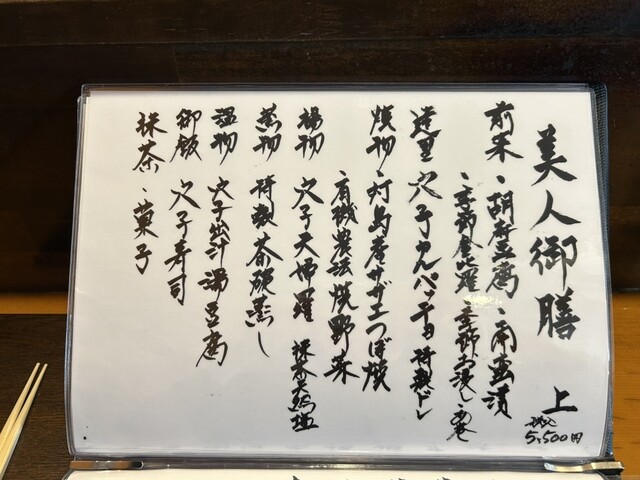 美人御膳 上
税込
5,500円
前菜、胡麻豆腐、南蛮漬
、季節金平羅、季節お浸し
造里 穴子カルパッチョ 特製ドレ
焼物、灯鳥産サザエつぼ焼
、有機農法焼野菜
揚物 穴子天婦羅 抹茶天然塩
蒸物 特製茶碗蒸し
温物 穴子出汁湯豆腐
御飯 穴子寿司
抹茶、菓子